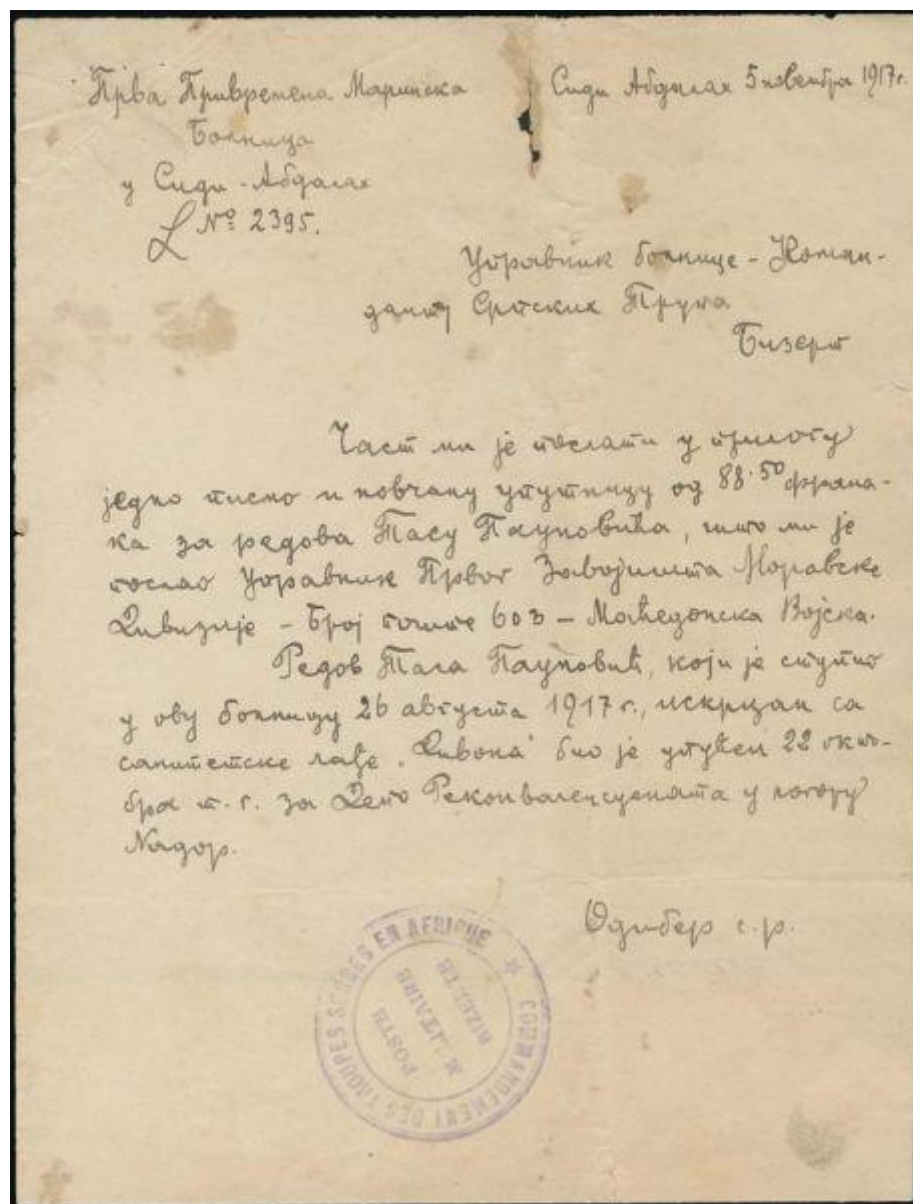 Прва Привремена Маринска
Болница
у Сиди-Абдалах
L № 2395.
Сиди Абдалах 5 новембра 1917 г.
Управник болнице - Коман-
данту Српских Трупа
Бизерт
Част ми је послати у прилогу
једно писмо и новчану упутницу од 88.50 франа-
ка за редова Тасу Пауновића, што ми је
послао Управник Првог Завојишта Моравске
Дивизије - Број поште 603 - Маћедонска Војска.
Редов Таса Пауновић, који је ступио
у ову болницу 26 августа 1917 г., искрцан са
санитетске лађе „Дивона" био је упућен 22 окто-
бра т. г. за Депо Реконваленсцената у логору
Надор.
Одибер с.р.
COMMANDEMENT DES TROUPES SERBES EN AFRIQUE
POSTE
MILITAIRE
BIZERTE